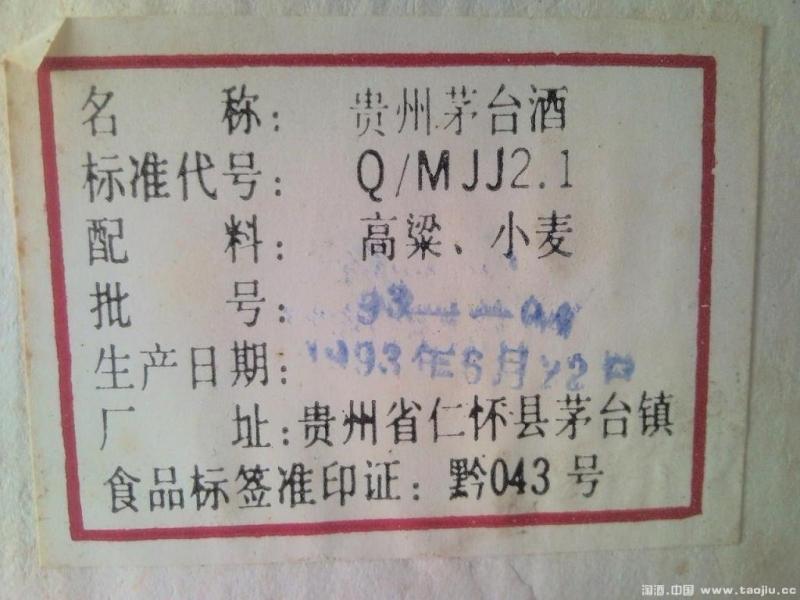 名 称: 贵州茅台酒
标准代号: Q/MJJ2.1
配 料: 高粱、小麦
批 号: 93
生产日期: 1993年6月22日
厂 址:贵州省仁怀县茅台镇
食品标签准印证: 黔043号
淘酒.中国 www.taojiu.cc